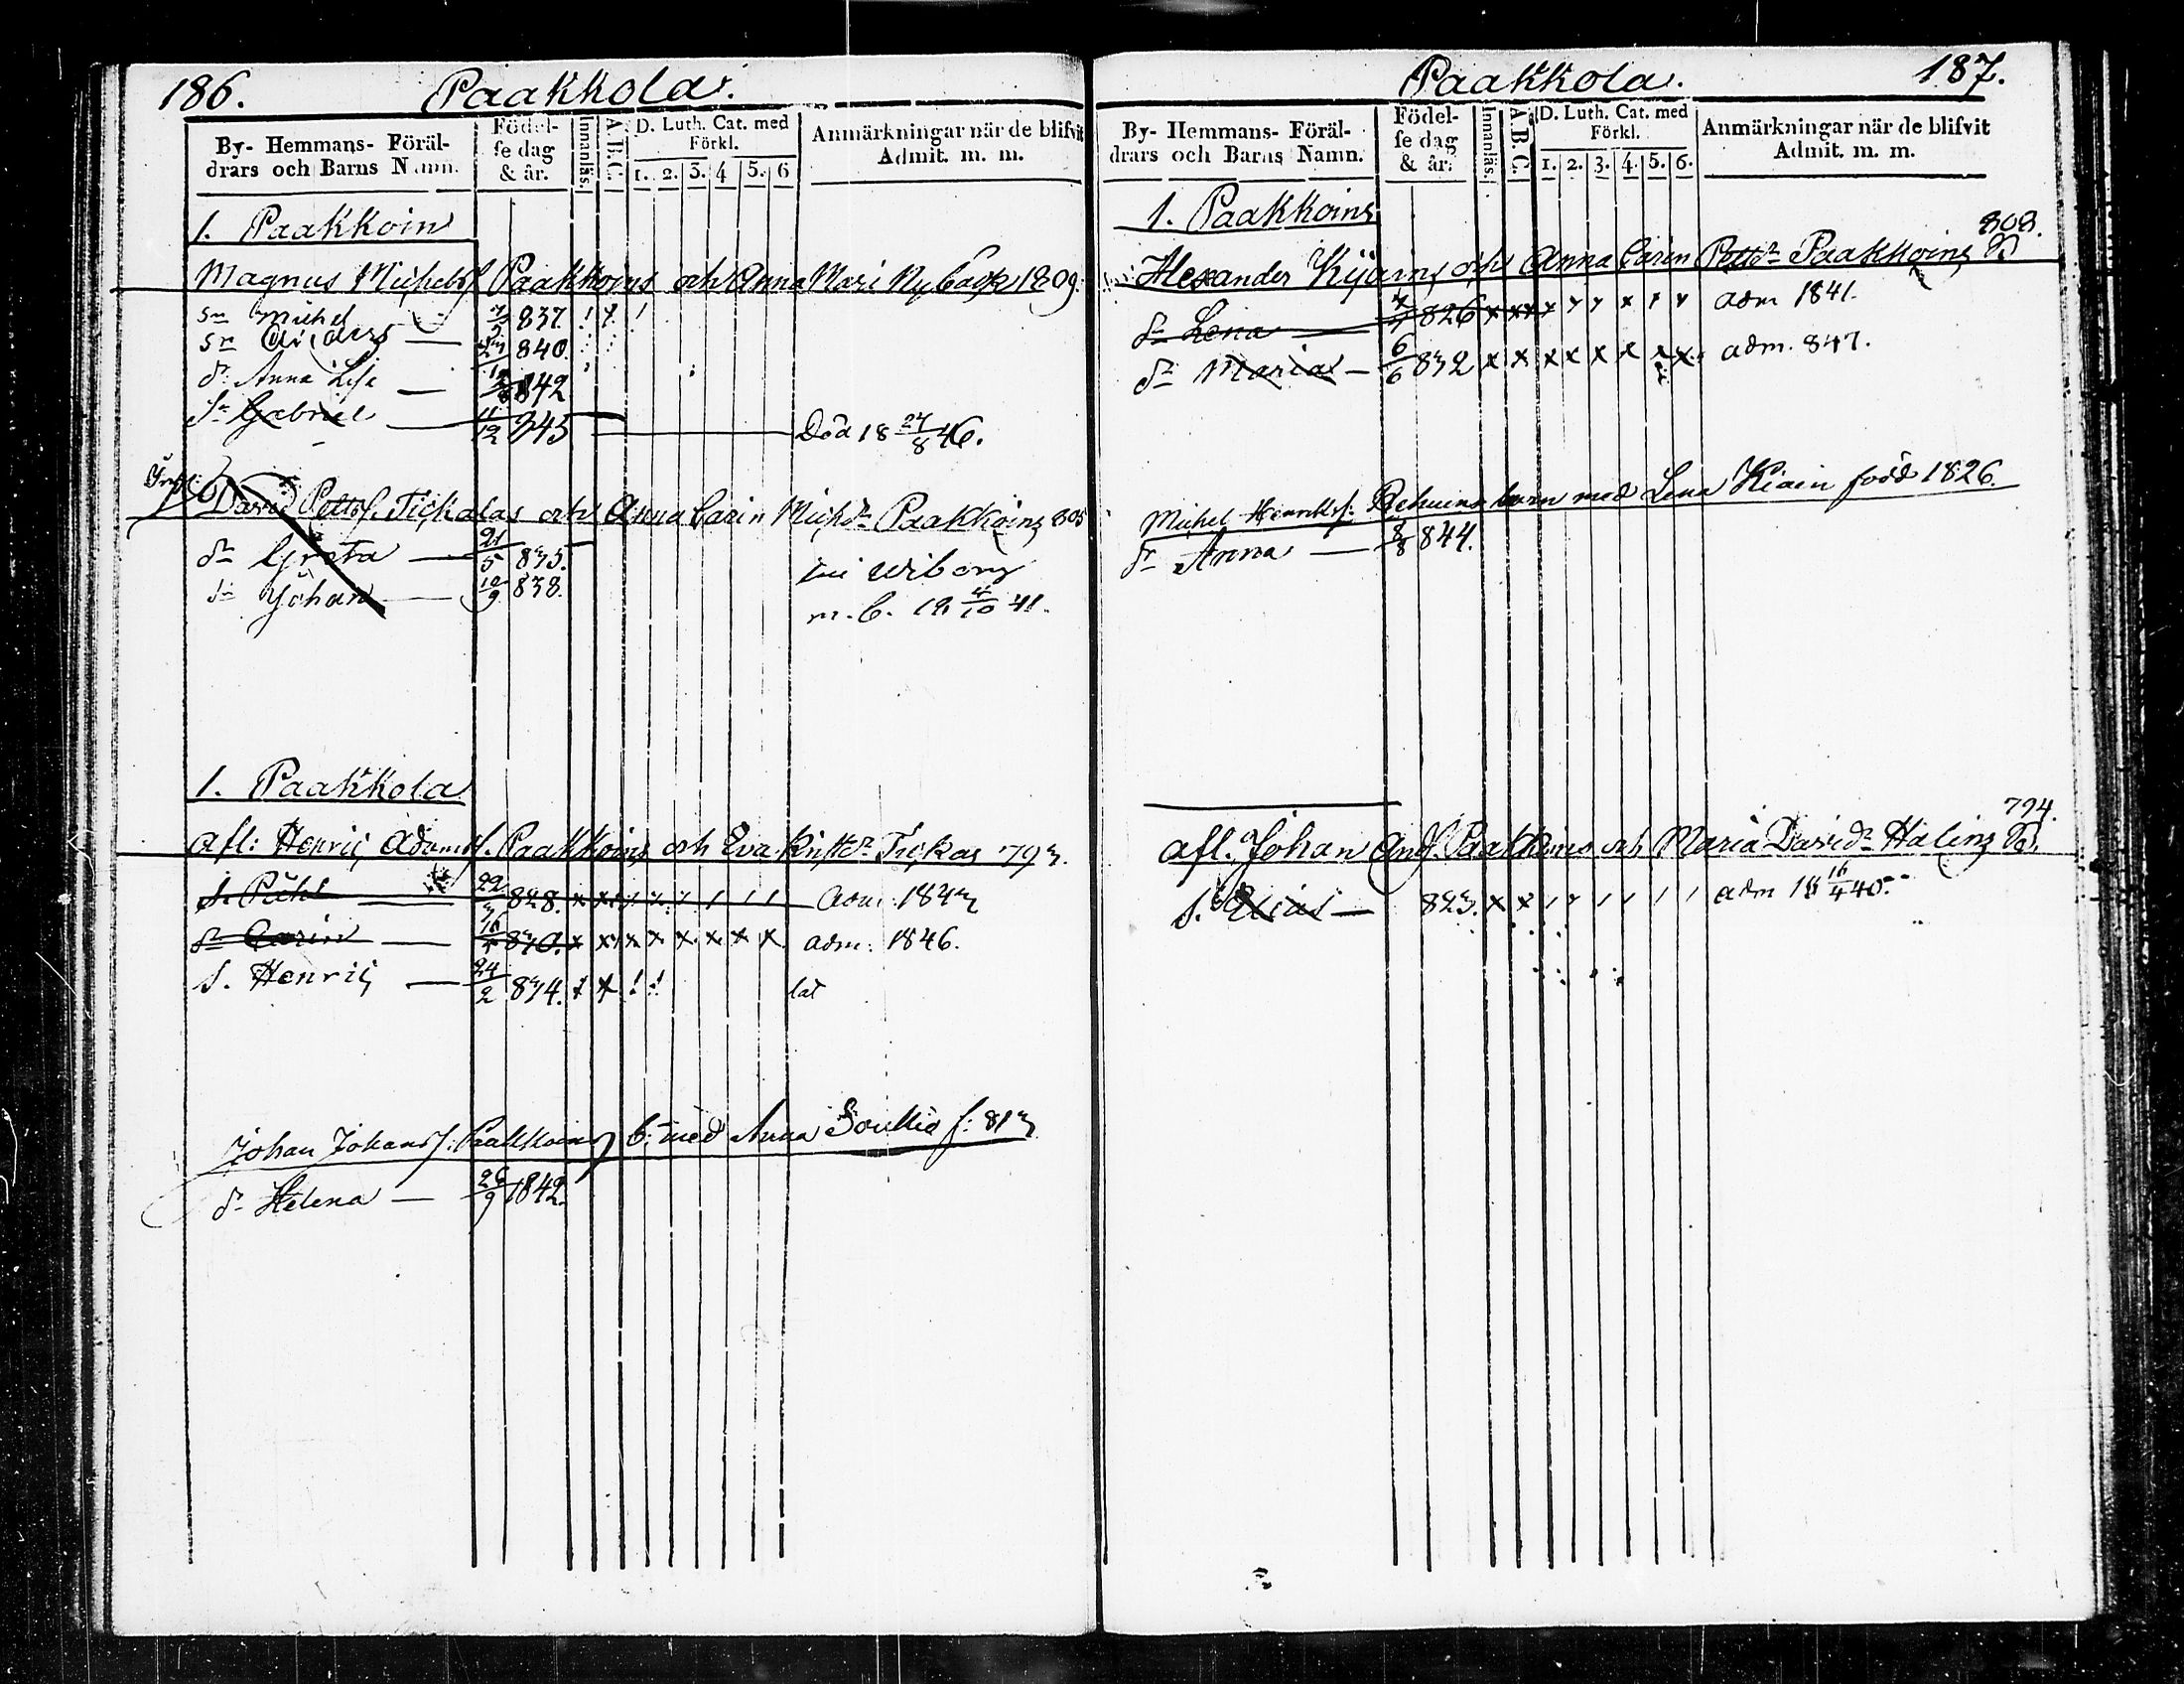 186. Paakkola.
By- Hemmans- Föräl-
drars och Barns Namn.
Födel-
se dag
& år.
Innanläs.
A.B.C.
D. Luth. Cat. med
Förkl.
1. 2. 3. 4 5. 6
Anmärkningar när de blifvit
Admit. m. m.
1. Paakkoin
Magnus Michelss. Paakkoins och Anna Mari Nybäck 1809.
Sn Michel 837.
Sn Anders — 840.
dr Anna Lisa — 842
Sn Gabriel — 11/12 845 — Död 18 24/8 46.
David Pettss. Tickalas och Anna Carin Michdr Paakkoins 805
dr Greta — 21/5 835. Wiborg
Sn Johan — 10/9 838. m. b. 18 4/10 41.
1. Paakkola
afl: Henric Adamss. Paakkoins och Eva Tickas 793.
22 828. x x Adm: 1843
dr Carin — 16 830. x x x x x x x x adm: 1846.
S. Henric — 24/2 834. x x ! !
Johan Johanss: Paakkoins b. med Anna f: 813
dr Helena — 26/9 1842.
Paakkola. 187.
By- Hemmans- Föräl-
drars och Barns Namn.
Födel-
se dag
& år.
Innanläs.
A.B.C.
D. Luth. Cat. med
Förkl.
1. 2. 3. 4. 5. 6.
Anmärkningar när de blifvit
Admit. m. m.
1. Paakkoins
808.
Alexander och Anna Carin Pettdr Paakkoins
dr Lena — 826 adm 1841.
dr Maria — 6/6 832 x x x x x x x x adm. 847.
Michel Henrikss: barn med Lena Kiain född 1826.
dr Anna — 8/8 844.
794.
afl. Johan Ands. Paakkoins och Maria Daviddr Halinz
S. Elias — 823. x x adm 18 16/4 40.